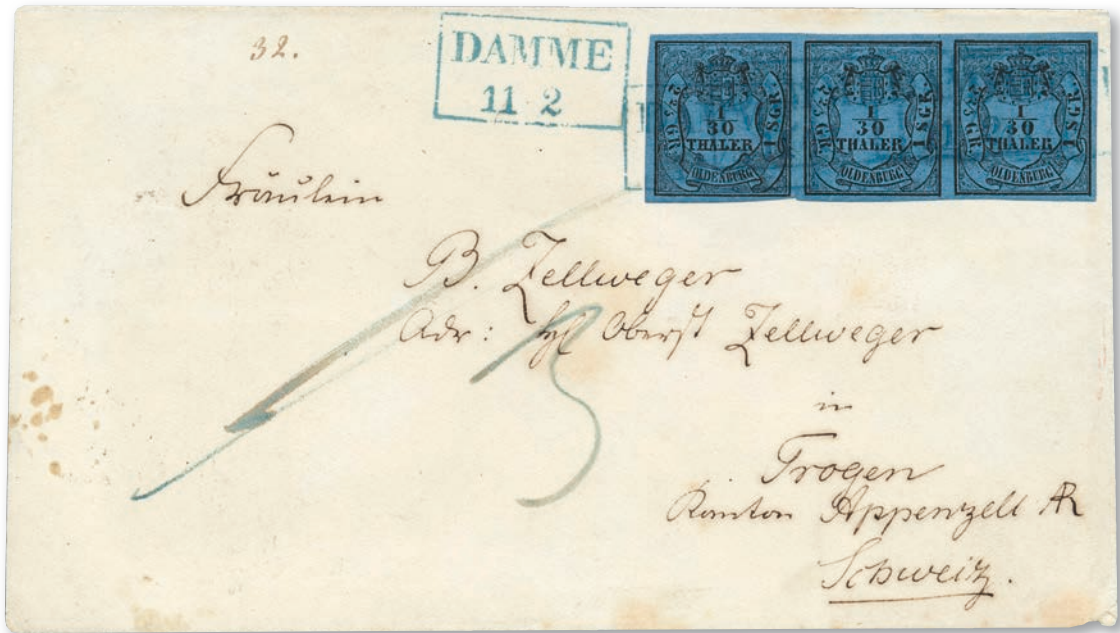 32.
DAMME
11 2
2 2/5 GR.
1
30
THALER
1 SGR.
OLDENBURG
2 2/5 GR.
1
30
THALER
1 SGR.
OLDENBURG
2 2/5 GR.
1
30
THALER
1 SGR.
OLDENBURG
Fräulein
B. Zellweger
Adr: Oberst Zellweger
in
Trogen
Kanton Appenzell AR
Schweiz.
3